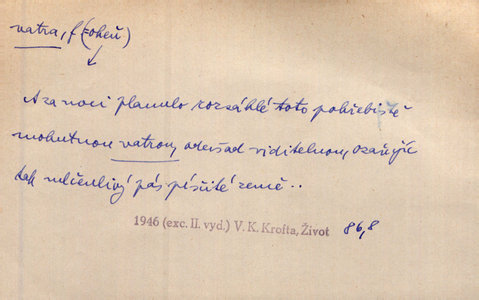 vatra, f (=oheň)
A za noci planulo rozsáhlé toto pohřebiště
mohutnou vatrou, odevšad viditelnou, ozařujíc
tak mlčenlivý pás písčité země..
1946 (exc. II. vyd.) V. K. Krofta, Život 86,8